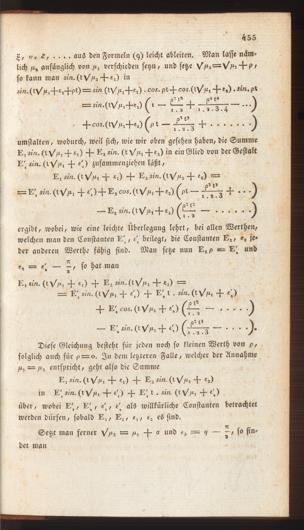 455
ξ, υ, ζ, . . . . aus den Formeln (9) leicht ableiten. Man lasse näm-
lich μ₂ anfänglich von μ₁ verschieden seyn, und setze √μ₂ = √μ₁ + ρ,
so kann man sin. (t√μ₂ + ε₂) in
sin. (t√μ₁ + ε₂ + ρt) = sin (t√μ₁ + ε₂) . cos. ρt + cos. (t√μ₁ + ε₂) . sin. ρt
= sin. (t√μ₁ + ε₂) (1 − ρ²t²/1.2 + ρ⁴t⁴/1.2.3.4 − ...)
+ cos. (t√μ₁ + ε₂) (ρt − ρ³t³/1.2.3 + . . . . . . .)
umstalten, wodurch, weil sich, wie wir oben gesehen haben, die Summe
E₁ sin. (t√μ₁ + ε₁) + E₂ sin. (t√μ₁ + ε₂) in ein Glied von der Gestalt
E′₁ sin. (t√μ₁ + ε′₁) zusammenziehen läßt,
E₁ sin. (t√μ₁ + ε₁) + E₂ sin. (t√μ₂ + ε₂) =
= E′₁ sin. (t√μ₁ + ε′₁) + E₂ cos. (t√μ₁ + ε₂) (ρt − ρ³t³/1.2.3 + ...)
− E₂ sin. (t√μ₁ + ε₂) (ρ²t²/1.2 − . . . . . .)
ergibt, wobei, wie eine leichte Überlegung lehrt, bei allen Werthen,
welchen man den Constanten E′₁, ε′₁ beilegt, die Constanten E₂, ε₂ je-
der anderen Werthe fähig sind. Man setze nun E₂ ρ = E′₂ und
ε₂ = ε′₂ − π/2, so hat man
E₁ sin. (t√μ₁ + ε₁) + E₂ sin. (t√μ₂ + ε₂) =
= E′₁ sin. (t√μ₁ + ε′₁) + E′₂ t . sin. (t√μ₁ + ε′₂)
+ E′₂ cos. (t√μ₁ + ε′₂) (ρt²/1.2 − . . . . .)
− E′₂ sin. (t√μ₁ + ε′₂) (ρ²t³/1.2.3 − . . . . . .).
Diese Gleichung besteht für jeden noch so kleinen Werth von ρ,
folglich auch für ρ = 0. In dem letzteren Falle, welcher der Annahme
μ₂ = μ₁ entspricht, geht also die Summe
E₁ sin. (t√μ₁ + ε₁) + E₂ sin. (t√μ₂ + ε₂)
in E′₁ sin. (t√μ₁ + ε′₁) + E′₂ t. sin. (t√μ₁ + ε′₂)
über, wobei E′₁, E′₂, ε′₁, ε′₂ als willkürliche Constanten betrachtet
werden dürfen, sobald E₁, E₂, ε₁, ε₂ es sind.
Setzt man ferner
so fin-
det man